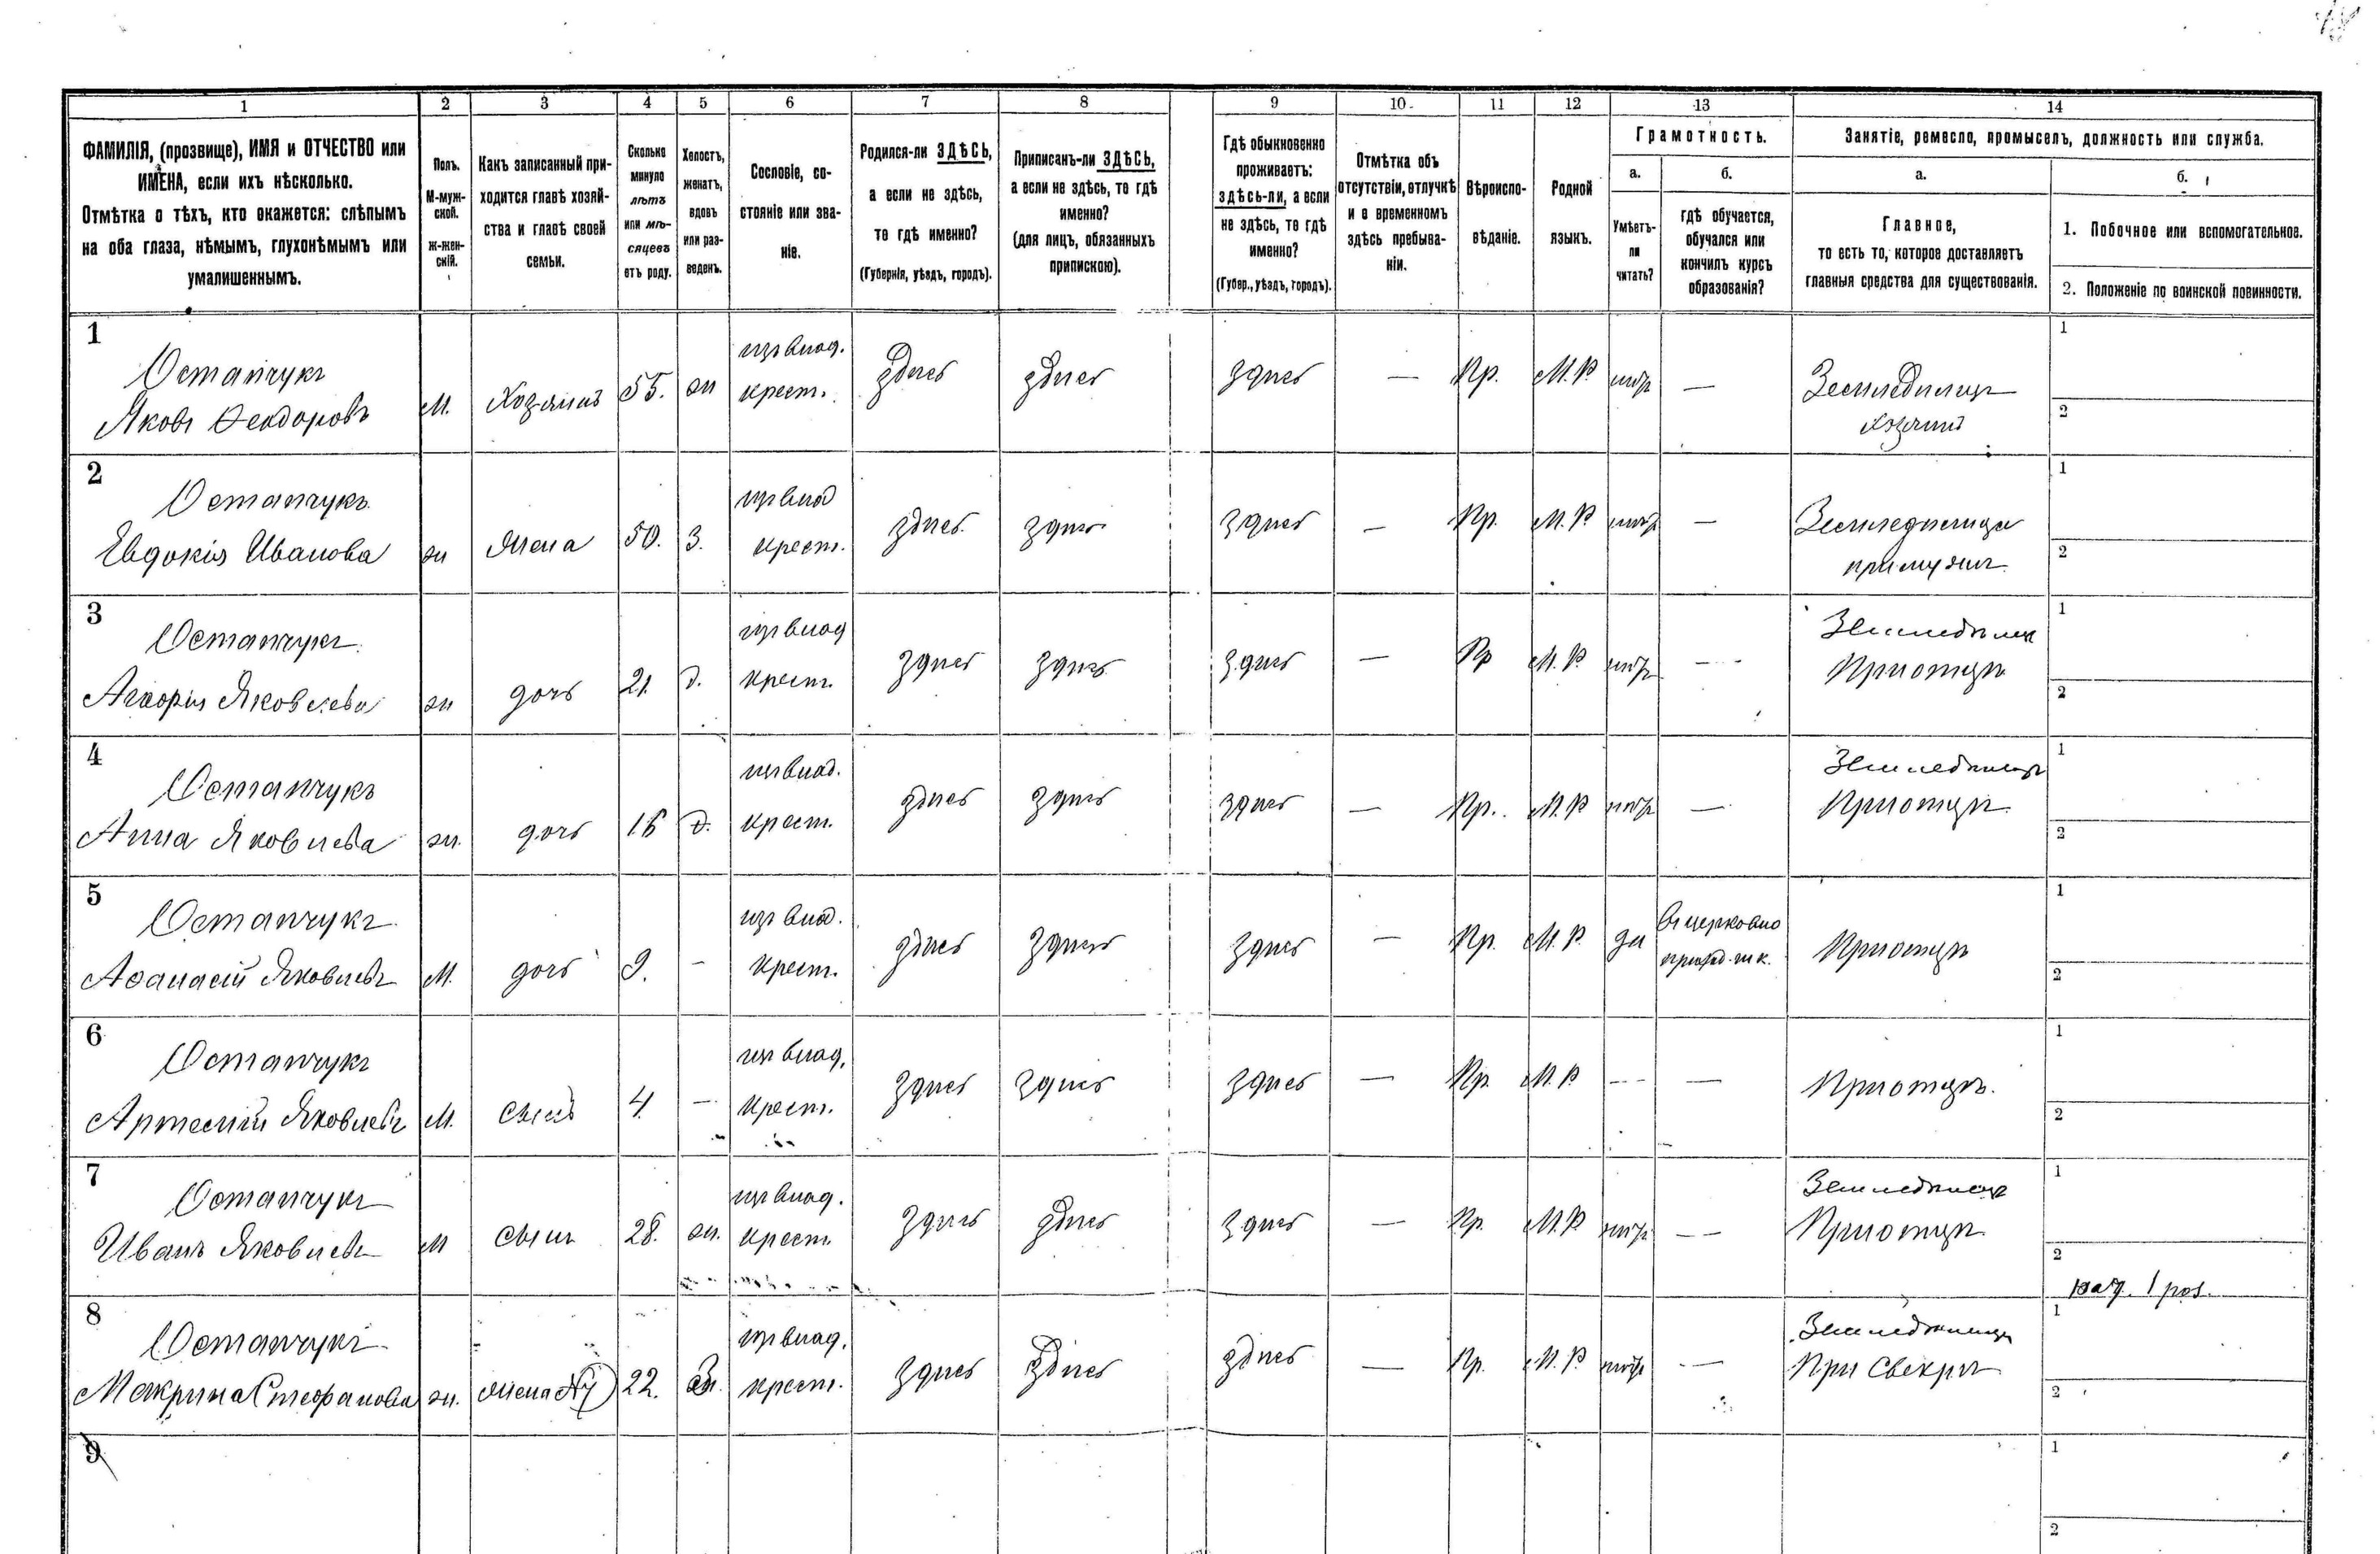 1 2 3 4 5 6 7 8 9 10. 11 12 13 14
ФАМИЛІЯ, (прозвище), ИМЯ и ОТЧЕСТВО или
ИМЕНА, если ихъ нѣсколько.
Отмѣтка о тѣхъ, кто окажется: слѣпымъ
на оба глаза, нѣмымъ, глухонѣмымъ или
умалишеннымъ.
Полъ.
М-муж-
ской.
ж-жен-
скій.
Какъ записанный при-
ходится главѣ хозяй-
ства и главѣ своей
семьи.
Сколько
минуло
лѣтъ
или мѣ-
сяцевъ
отъ роду.
Холостъ,
женатъ,
вдовъ
или раз-
веденъ.
Сословіе, со-
стояніе или зва-
ніе.
Родился-ли ЗДѢСЬ,
а если не здѣсь,
то гдѣ именно?
(Губернія, уѣздъ, городъ).
Приписанъ-ли ЗДѢСЬ,
а если не здѣсь, то гдѣ
именно?
(для лицъ, обязанныхъ
припискою).
Гдѣ обыкновенно
проживаетъ:
здѣсь-ли, а если
не здѣсь, то гдѣ
именно?
(Губер., уѣздъ, городъ).
Отмѣтка объ
отсутствіи, отлучкѣ
и о временномъ
здѣсь пребыва-
ніи.
Вѣроиспо-
вѣданіе.
Родной
языкъ.
Грамотность.
а.
Умѣетъ-
ли
читать?
б.
гдѣ обучается,
обучался или
кончилъ курсъ
образованія?
Занятіе, ремесло, промыселъ, должность или служба.
а.
Главное,
то есть то, которое доставляетъ
главныя средства для существованія.
б.
1. Побочное или вспомогательное.
2. Положеніе по воинской повинности.
1
Остапчукъ
Яковъ Феодоровъ
М. Хозяинъ 55. ж
изъ влад.
крест.
здѣсь здѣсь здѣсь — Пр. М.Р. нѣтъ —
Земледѣлецъ
хозяинъ
1
2
2
Остапчукъ
Евдокія Иванова
ж жена 50. З.
изъ влад
крест.
здѣсь здѣсь здѣсь — Пр. М.Р. нѣтъ —
Земледѣлица
при мужѣ
1
2
3
Остапчукъ
Яковлева
ж дочь 21. д.
изъ влад
крест.
здѣсь здѣсь здѣсь — Пр М.Р. нѣтъ —
Земледѣлец
При отцѣ
1
2
4
Остапчукъ
Анна Яковлева
ж. дочь 16 д.
изъ влад.
крест.
здѣсь здѣсь здѣсь — Пр. М.Р нѣтъ —
Земледѣлецъ
При отцѣ
1
2
5
Остапчукъ
Аѳанасій Яковлевъ
М. дочь 9. -
изъ влад.
крест.
здѣсь здѣсь здѣсь — Пр. М.Р. да
Въ церковно
приход. шк.
При отцѣ
1
2
6
Остапчукъ
Артемій Яковлевъ
М. сынъ 4. —
изъ влад.
крест.
здѣсь здѣсь здѣсь — Пр. М.Р — —
При отцѣ.
1
2
7
Остапчукъ
Иванъ Яковлевъ
М сынъ 28. ж.
изъ влад.
крест
здѣсь здѣсь здѣсь — Пр. М.Р нѣтъ —
Земледѣлецъ
При отцѣ
1
2
1 раз.
8
Остапчукъ
Макрина Стефанова
ж. жена №7 22. З.
изъ влад.
крест.
здѣсь здѣсь здѣсь — Пр. М.Р нѣтъ —
Земледѣлица
При свекрѣ
1
2
9
1
2